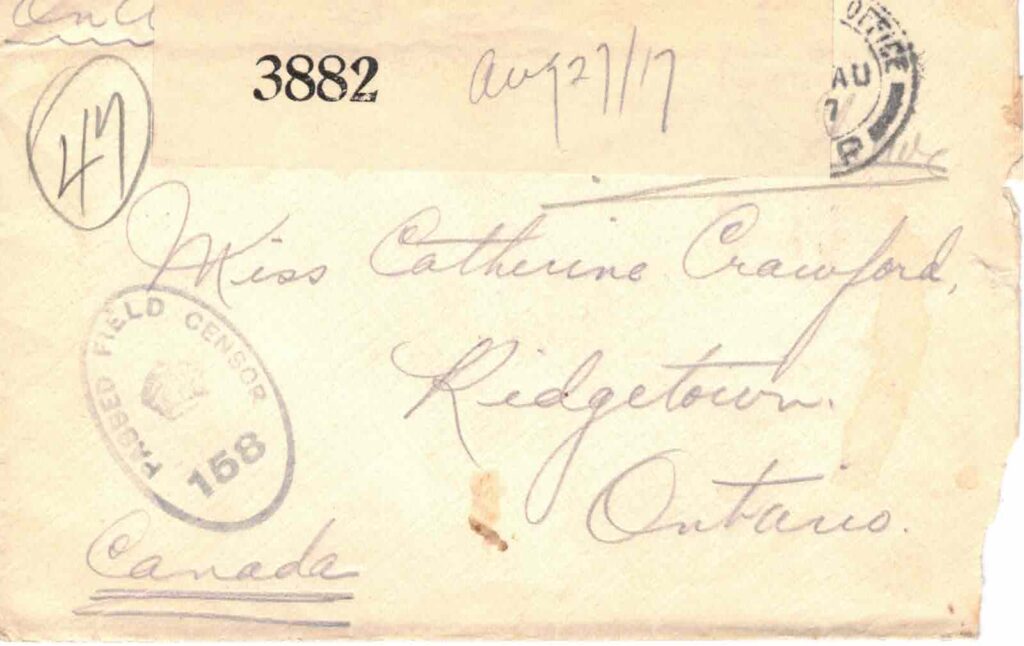 3882 Aug 27/17
OFFICE
AU
7
P
47
Miss Catherine Crawford,
Ridgetown.
Ontario.
PASSED FIELD CENSOR
158
Canada